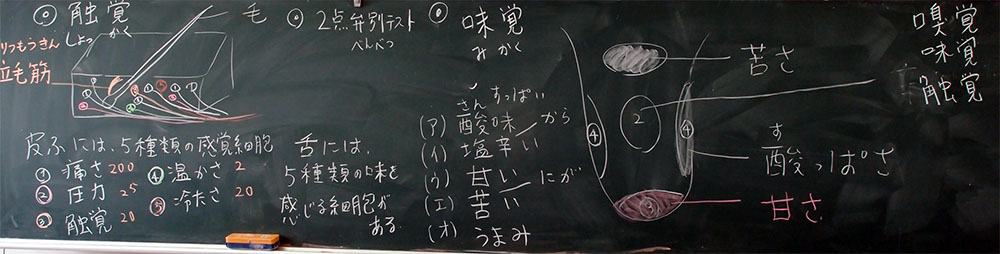 ◎ 触覚
しょっ かく
毛
りつもうきん
立毛筋
皮ふには、5種類の感覚細胞
① 痛さ 200
② 圧力 25
③ 触覚 20
④ 温かさ 2
⑤ 冷たさ 20
◎ 2点弁別テスト
べんべつ
舌には、
5種類の味を
感じる細胞が
ある
◎ 味覚
みかく
さん すっぱい
(ア) 酸味
から
(イ) 塩辛い
(ウ) 甘い
にが
(エ) 苦い
(オ) うまみ
苦さ
②
④
④
す
酸っぱさ
甘さ
嗅覚
味覚
触覚